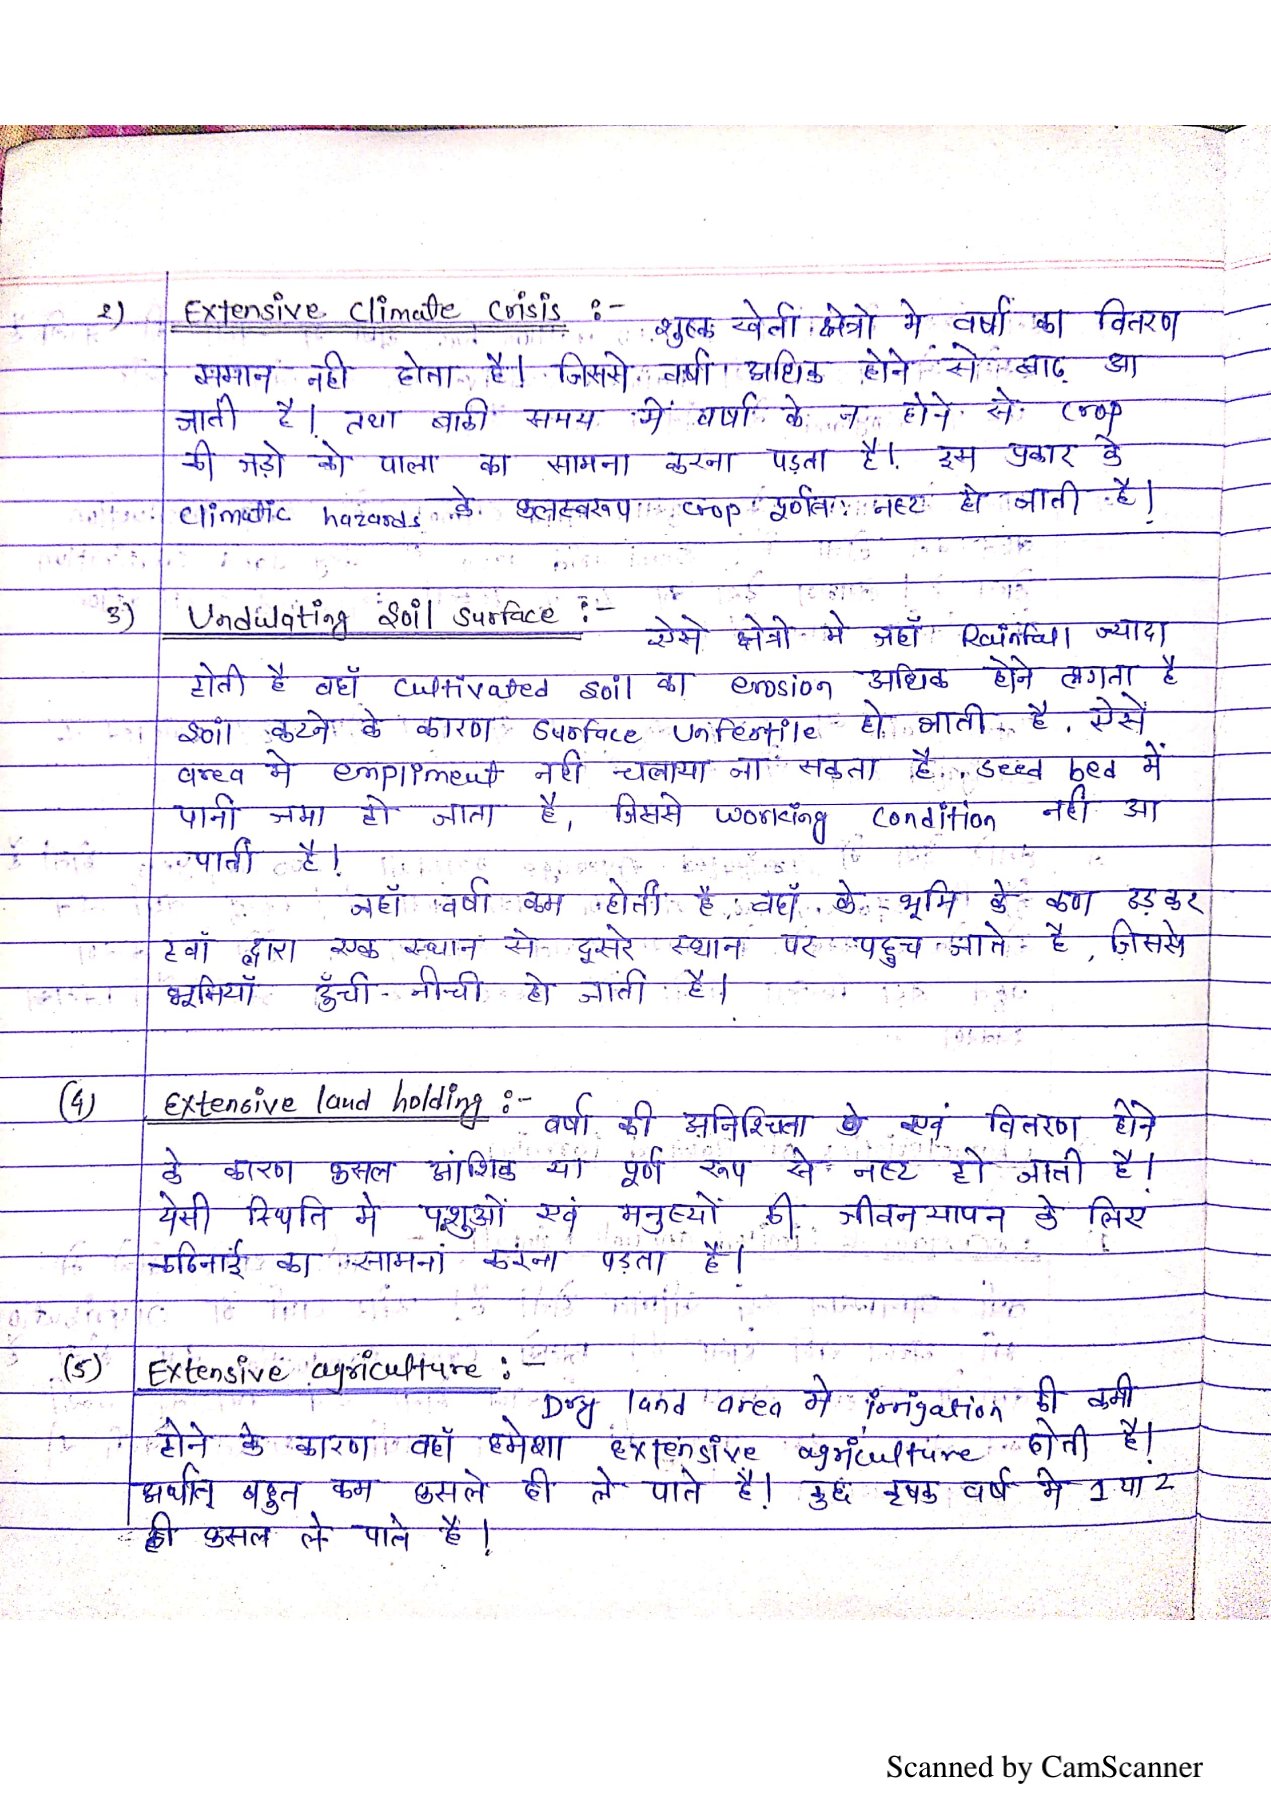 2) Extensive Climate Crisis :- शुष्क खेती क्षेत्रो मे वर्षा का वितरण
समान नही होता है। जिससे वर्षा अधिक होने से बाढ़ आ
जाती है। तथा बाकी समय में वर्षा के न होने से crop
की जड़ो को पाला का सामना करना पड़ता है। इस प्रकार के
climatic hazards के फलस्वरूप crop पूर्णतः नष्ट हो जाती है।
3) Undulating Soil Surface :- ऐसे क्षेत्रो मे जहाँ Rainfall ज्यादा
होती है वहाँ cultivated soil का erosion अधिक होने लगता है
soil कटने के कारण surface unfertile हो जाती है. ऐसे
area मे empliment नही चलाया जा सकता है. seed bed में
पानी जमा हो जाता है, जिससे working condition नही आ
पाती है।
जहाँ वर्षा कम होती है, वहाँ के भूमि के कण उड़कर
हवाँ द्वारा एक स्थान से दूसरे स्थान पर पहुच जाते है, जिससे
भूमियाँ ऊँची-नीची हो जाती है।
(4) Extensive land holding :- वर्षा की अनिश्चिता एवं वितरण होने
के कारण फसल आंशिक या पूर्ण रूप से नष्ट हो जाती है।
येसी स्थिति मे पशुओं एवं मनुष्यों की जीवनयापन के लिए
कठिनाई का सामना करना पड़ता है।
(5) Extensive agriculture :- Dry land area मे irrigation की कमी
होने के कारण वहाँ हमेशा extensive agriculture होती है।
अर्थात् बहुत कम फसले ही ले पाते है। कुछ कृषक वर्ष मे 1 या 2
ही फसल ले पाते है।
Scanned by CamScanner